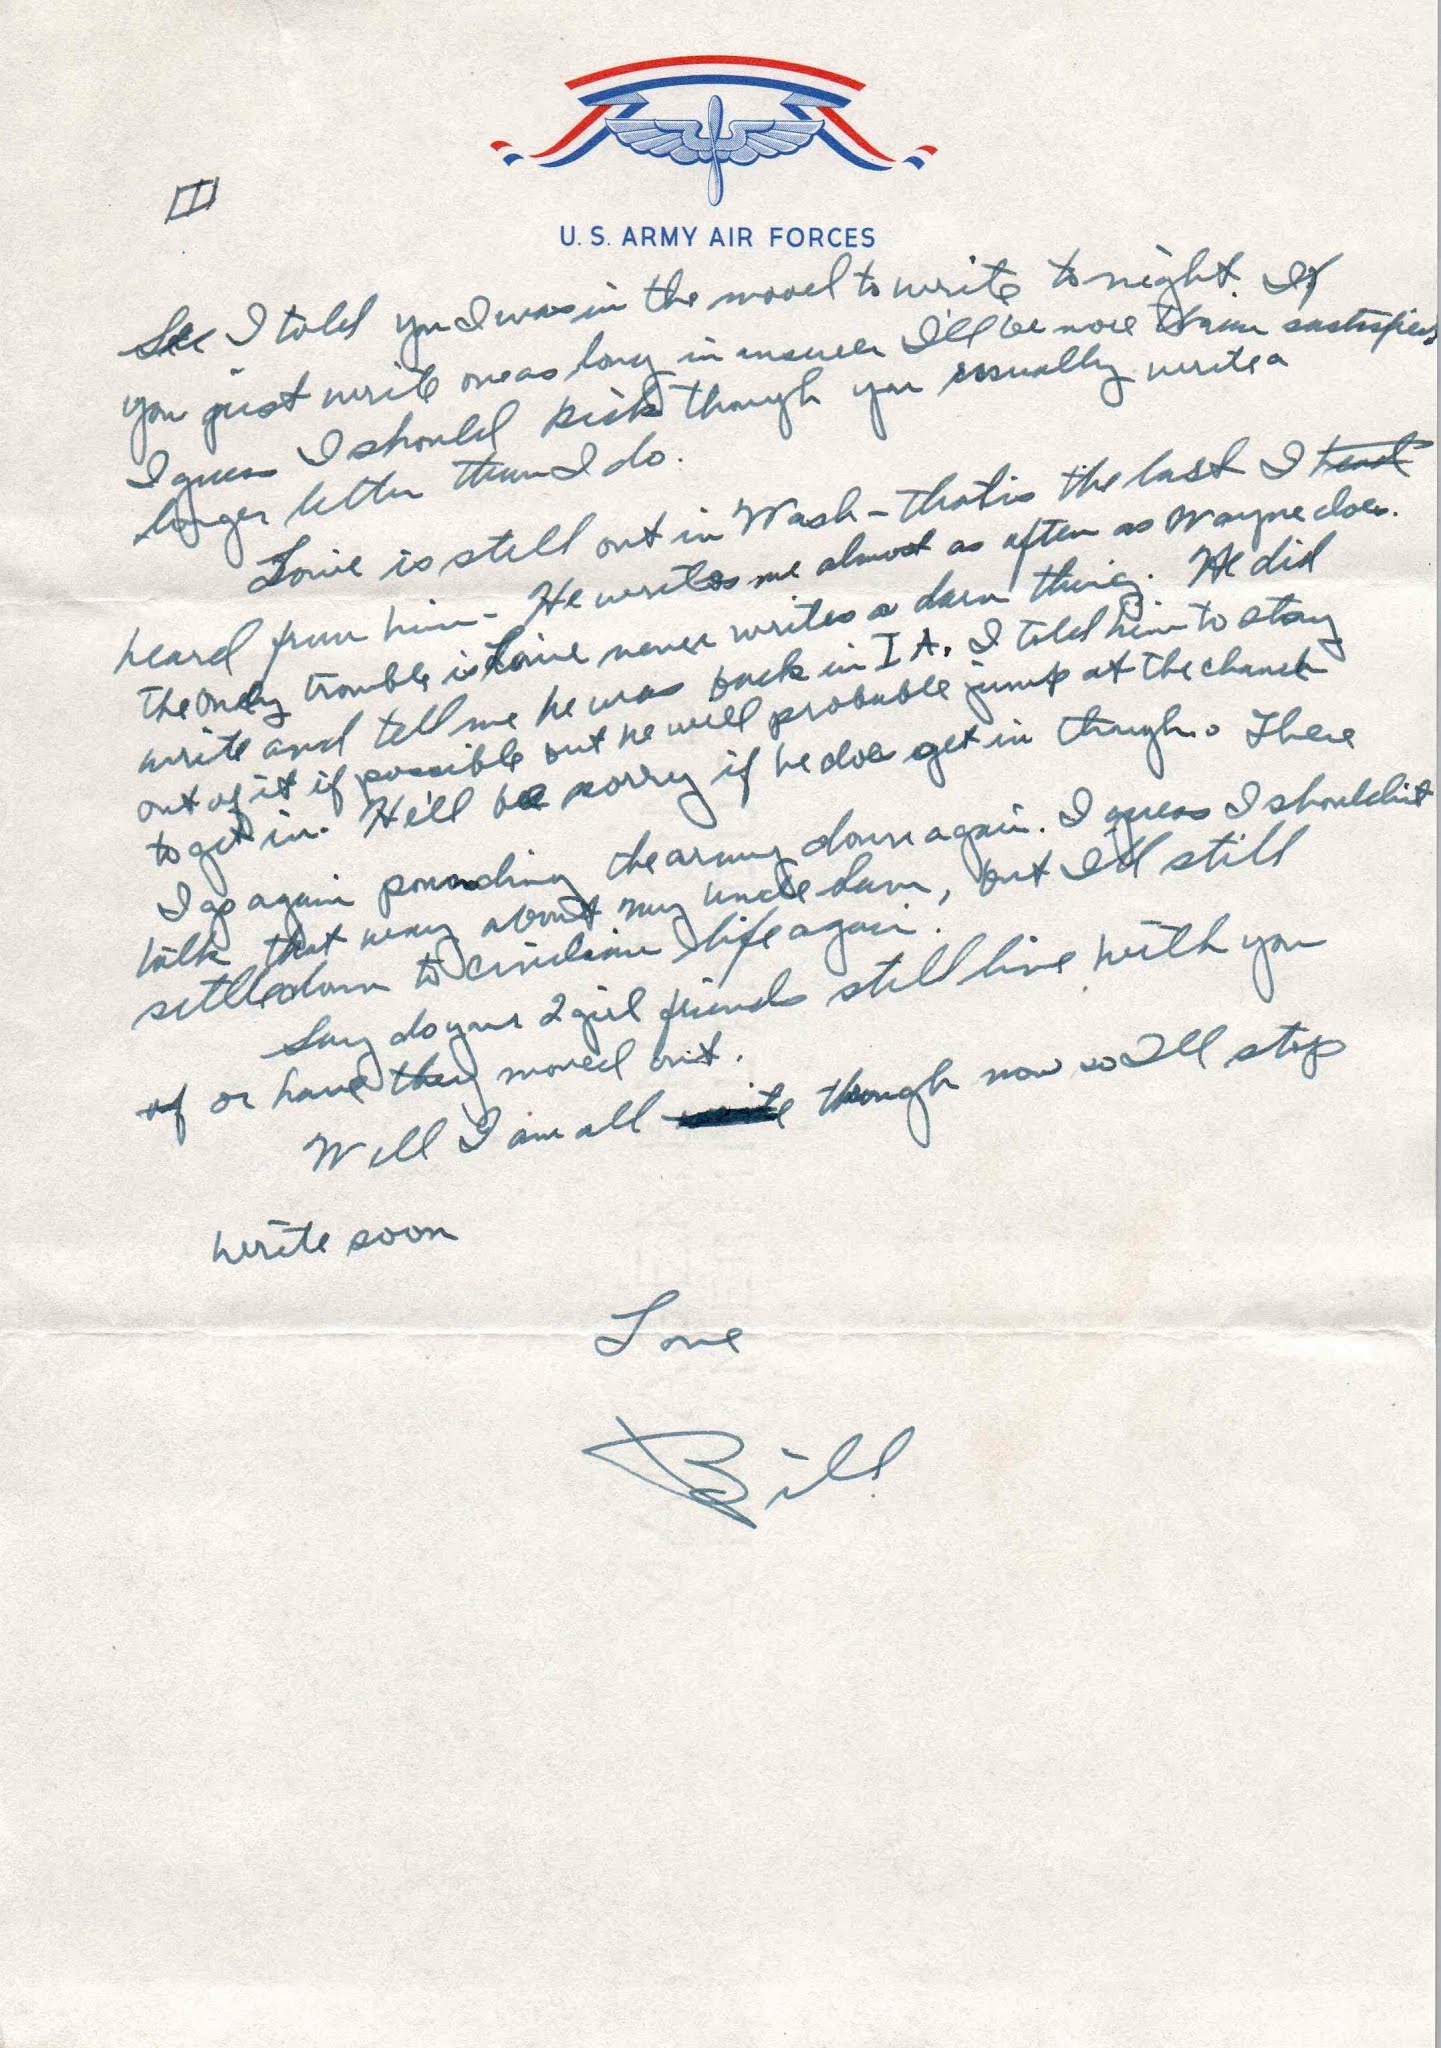 I
U.S. ARMY AIR FORCES
See I told you I was in the mood to write to night. If
you just write one as long in answer I'll be more than sastisfied
I guess I should kick though you usually write a
longer letter than I do.
is still out in Wash - that is the last I
heard from him - He writes me almost as often as Wayne does.
The only trouble is never writes a darn thing. He did
write and tell me he was back in I A. I told him to stay
out of it if possible but he will probable jump at the chance
to get in. He'll be sorry if he does get in though. There
I go again pounding the army down again. I guess I shouldn't
talk that way about my uncle Sam, but I'd still
settle down to civilian life again.
Say do your 2 girl friends still live with you
or have they moved out.
Well I am all through now so I'll stop
Write soon
Love
Bill